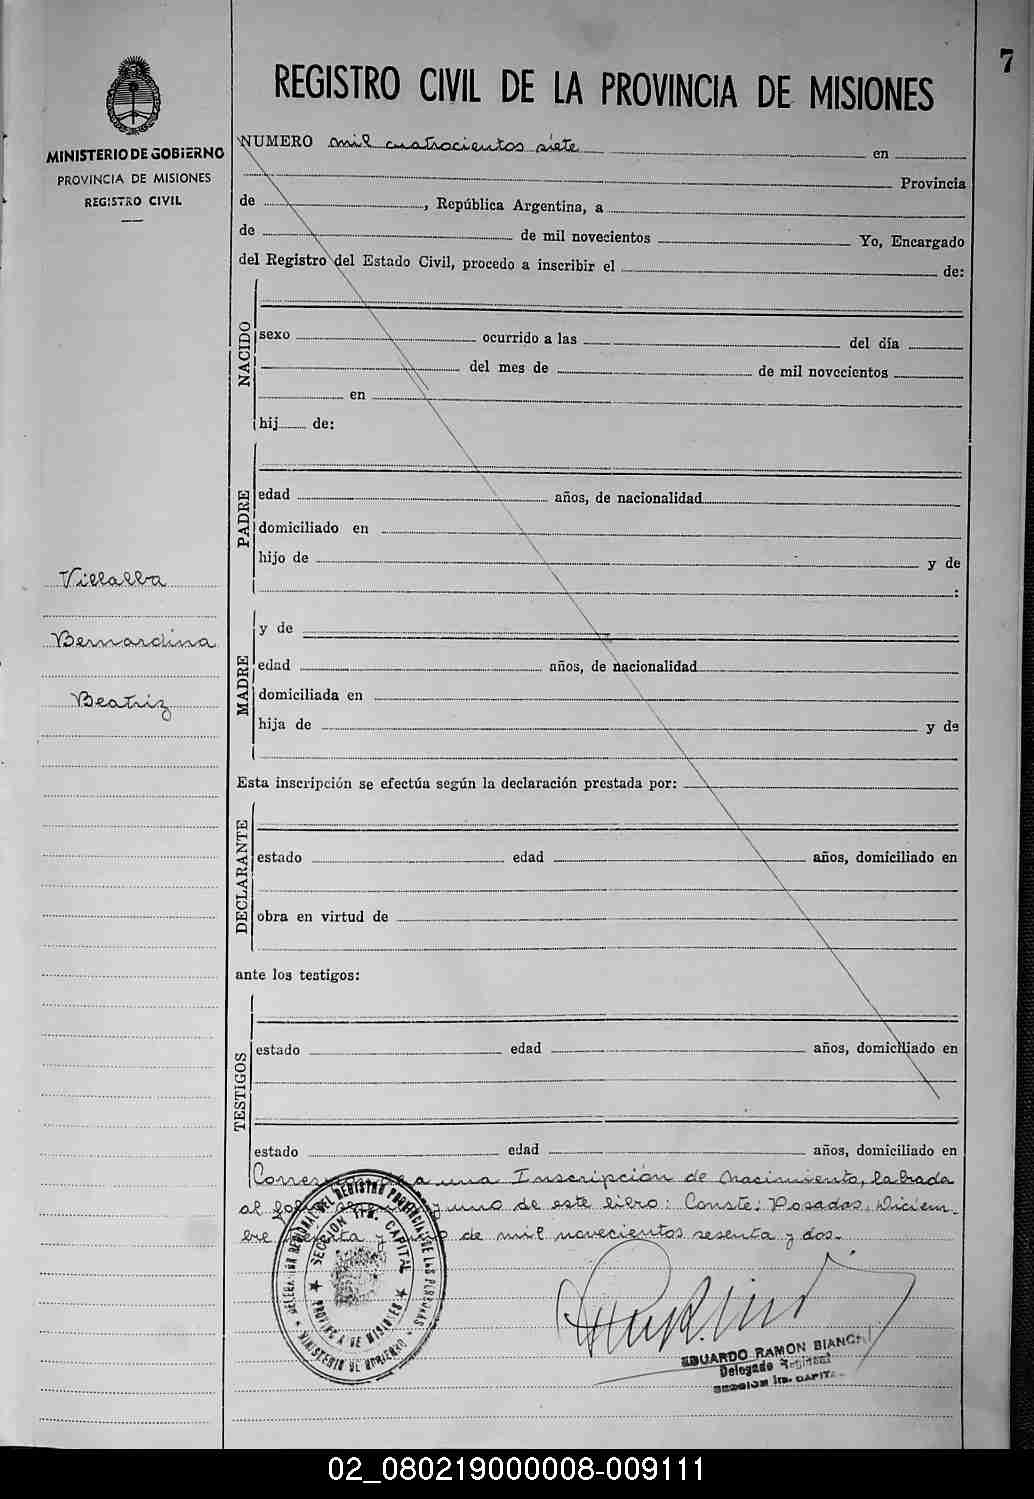 7
REGISTRO CIVIL DE LA PROVINCIA DE MISIONES
MINISTERIO DE GOBIERNO
PROVINCIA DE MISIONES
REGISTRO CIVIL
NUMERO mil cuatrocientos siete en
Provincia
de , República Argentina, a
de de mil novecientos Yo, Encargado
del Registro del Estado Civil, procedo a inscribir el de:
NACIDO
sexo ocurrido a las del día
del mes de de mil novecientos
en
hij de:
PADRE
edad años, de nacionalidad
domiciliado en
hijo de y de
:
Villalba
Bernardina
Beatriz
MADRE
y de
edad años, de nacionalidad
domiciliada en
hija de y de
Esta inscripción se efectúa según la declaración prestada por:
DECLARANTE
estado edad años, domiciliado en
obra en virtud de
ante los testigos:
TESTIGOS
estado edad años, domiciliado en
estado edad años, domiciliado en
una Inscripción de Nacimiento, labrada
al uno de este libro: Conste: Posadas, Diciem-
bre treinta y de mil novecientos sesenta y dos.-
DELEGACIÓN REGIONAL DEL REGISTRO PROVINCIAL DE LAS PERSONAS
SECCION 1ra. CAPITAL
PROVINCIA DE MISIONES
MINISTERIO DE GOBIERNO
EDUARDO RAMON BIANCHI
Delegado Regional
SECCION 1ra. CAPITAL
02_080219000008-009111